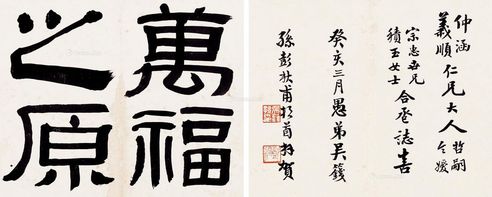 萬福
之原
仲涵
義順 仁兄大人 哲嗣 令媛
世兄
積玉女士 合巹誌喜
癸亥三月愚弟吳籛
孫彭 甫頓首拜賀